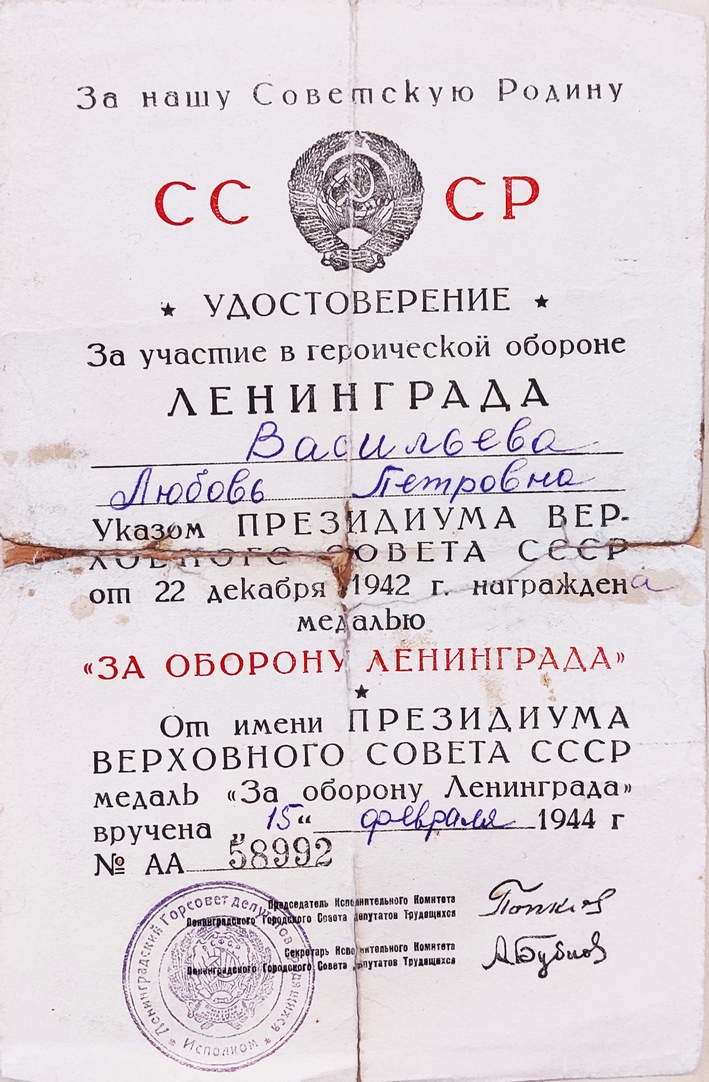 За нашу Советскую Родину
СССР
★ УДОСТОВЕРЕНИЕ ★
За участие в героической обороне
ЛЕНИНГРАДА
Васильева
Любовь Петровна
Указом ПРЕЗИДИУМА ВЕР-
ХОВНОГО СОВЕТА СССР
от 22 декабря 1942 г. награждена
медалью
«ЗА ОБОРОНУ ЛЕНИНГРАДА»
★
От имени ПРЕЗИДИУМА
ВЕРХОВНОГО СОВЕТА СССР
медаль «За оборону Ленинграда»
вручена „15“ февраля 1944 г
№ АА 58992
Председатель Исполнительного Комитета
Ленинградского Городского Совета Депутатов Трудящихся
Попков
Секретарь Исполнительного Комитета
Ленинградского Городского Совета Депутатов Трудящихся
АБубнов
Ленинградский Горсовет депутатов трудящихся
Исполком